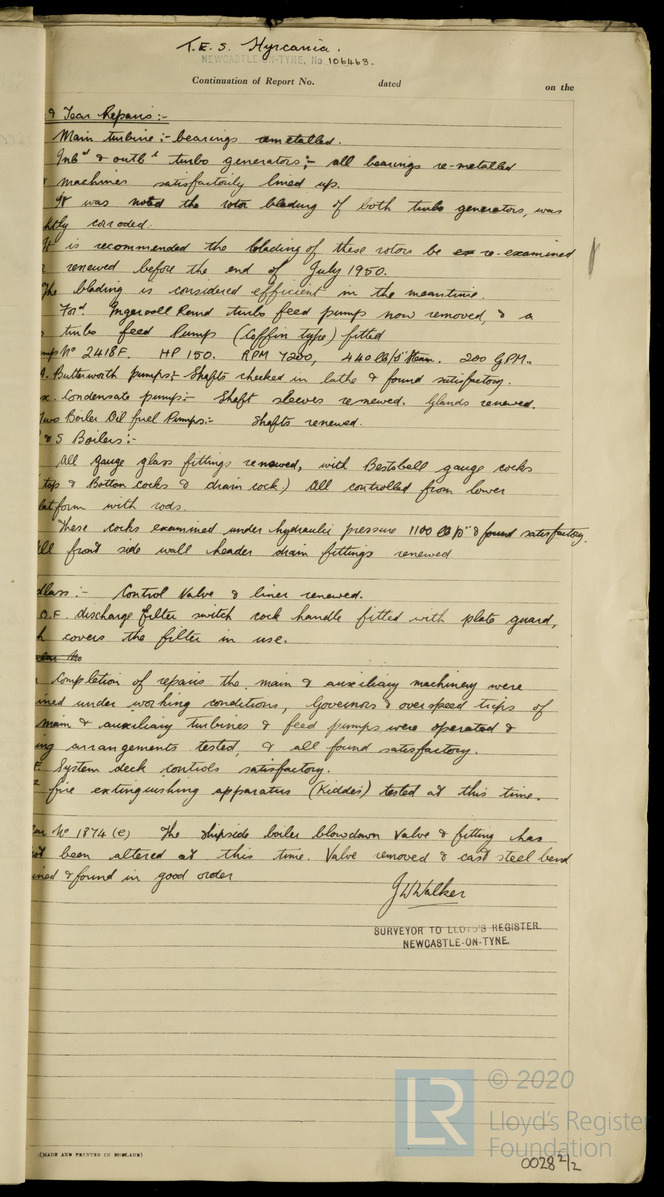 T.E.S. Hyrcania.
NEWCASTLE-ON-TYNE, No 106463.
Continuation of Report No. dated on the
& Tear Repairs:-
Main turbine:- bearings remetalled.
Inbd & outbd turbo generators:- all bearings re-metalled
machines satisfactorily lined up.
It was noted the rotor blading of both turbo generators, was
htly corroded.
It is recommended the blading of these rotors be ex re-examined
renewed before the end of July 1950.
The blading is considered efficient in the meantime.
Ford. Ingersoll Rand turbo feed pump now removed, & a
turbo feed Pump (Coffin type) fitted
mp No 2418F. HP 150. RPM 7200, 440 lb/□" steam. 200 GPM.
Butterworth pumps:- Shafts checked in lathe & found satisfactory.
x. Condensate pump:- Shaft sleeves renewed. Glands renewed.
Two Boiler Oil fuel Pumps:- Shafts renewed.
& S Boilers:-
All gauge glass fittings renewed, with Bestobell gauge cocks
top & Bottom cocks & drain cock.) All controlled from lower
latform with rods.
These cocks examined under hydraulic pressure 1100 lb/□" & found satisfactory.
All front side wall header drain fittings renewed
dlass:- Control Valve & liner renewed.
O.F. discharge filter switch cock handle fitted with plate guard,
h covers the filter in use.
completion of repairs the main & auxiliary machinery were
ined under working conditions, Governors & overspeed trips of
main & auxiliary turbines & feed pumps were operated &
ing arrangements tested, & all found satisfactory.
System deck controls satisfactory.
fire extinguishing apparatus (Kiddes) tested at this time.
No 1874 (e) The shipside boiler blowdown Valve & fitting has
not been altered at this time. Valve removed & cast steel bend
ined & found in good order
J W Walker
SURVEYOR TO LLOYD'S REGISTER.
NEWCASTLE-ON-TYNE.
(MADE AND PRINTED IN ENGLAND)
LR © 2020
Lloyd's Register
Foundation
0028 2/2